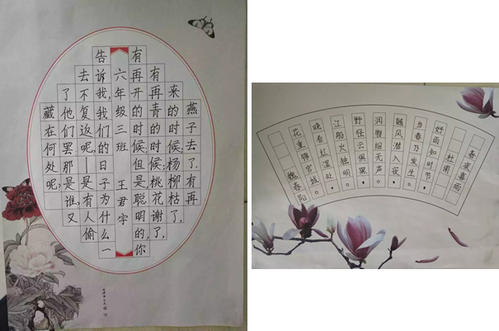 燕子去了,有再
来的时候;杨柳枯了,
有再青的时候;桃花谢了,
有再开的时候。但是,聪明的,你
六年级三班 王君宇
告诉我,我们的日子为什么一
去不复返呢?——是有人偷
了他们罢:那是谁?又
藏在何处呢?
春夜喜雨
杜甫
好雨知时节,
当春乃发生。
随风潜入夜,
润物细无声。
野径云俱黑,
江船火独明。
晓看红湿处,
花重锦官城。
魏春阳